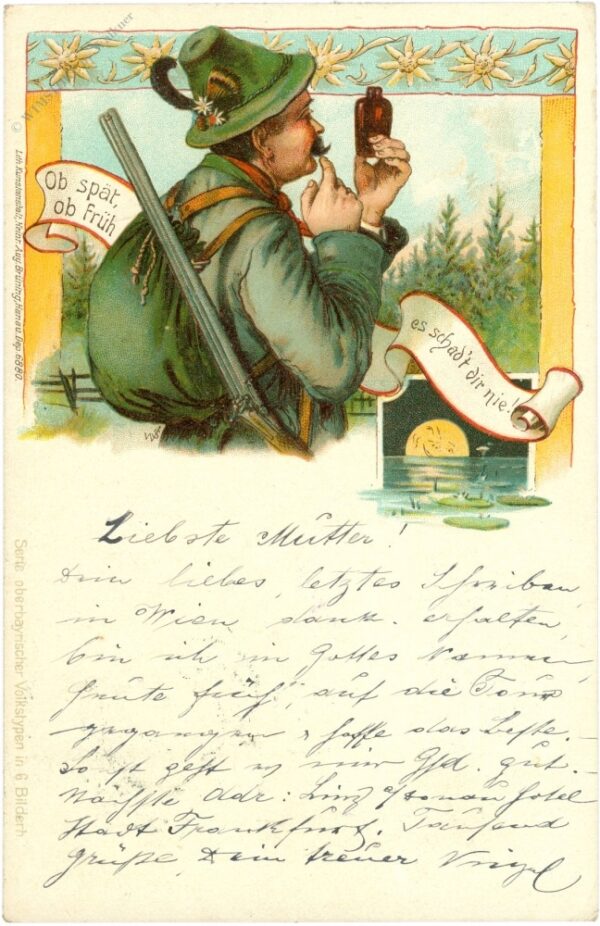 Ob spät,
ob früh
es schad't dir nie!
Lith. Kunstanstalt, Heinr. & Aug. Brüning, Hanau. Dep. 6880.
Serie oberbayrischer Volkstypen in 6 Bildern
Liebste Mutter!
Dein liebes, letztes Schreiben
in Wien dank. erhalten,
bin ich in Gottes Namen,
heute früh, auf die Tour
gegangen & hoffe das Beste. –
So ist geht es mir Gfd. gut.
Nächste Adr: Linz a/Donau Hotel
Stadt Frankfurt. Tausend
Grüße, Dein treuer